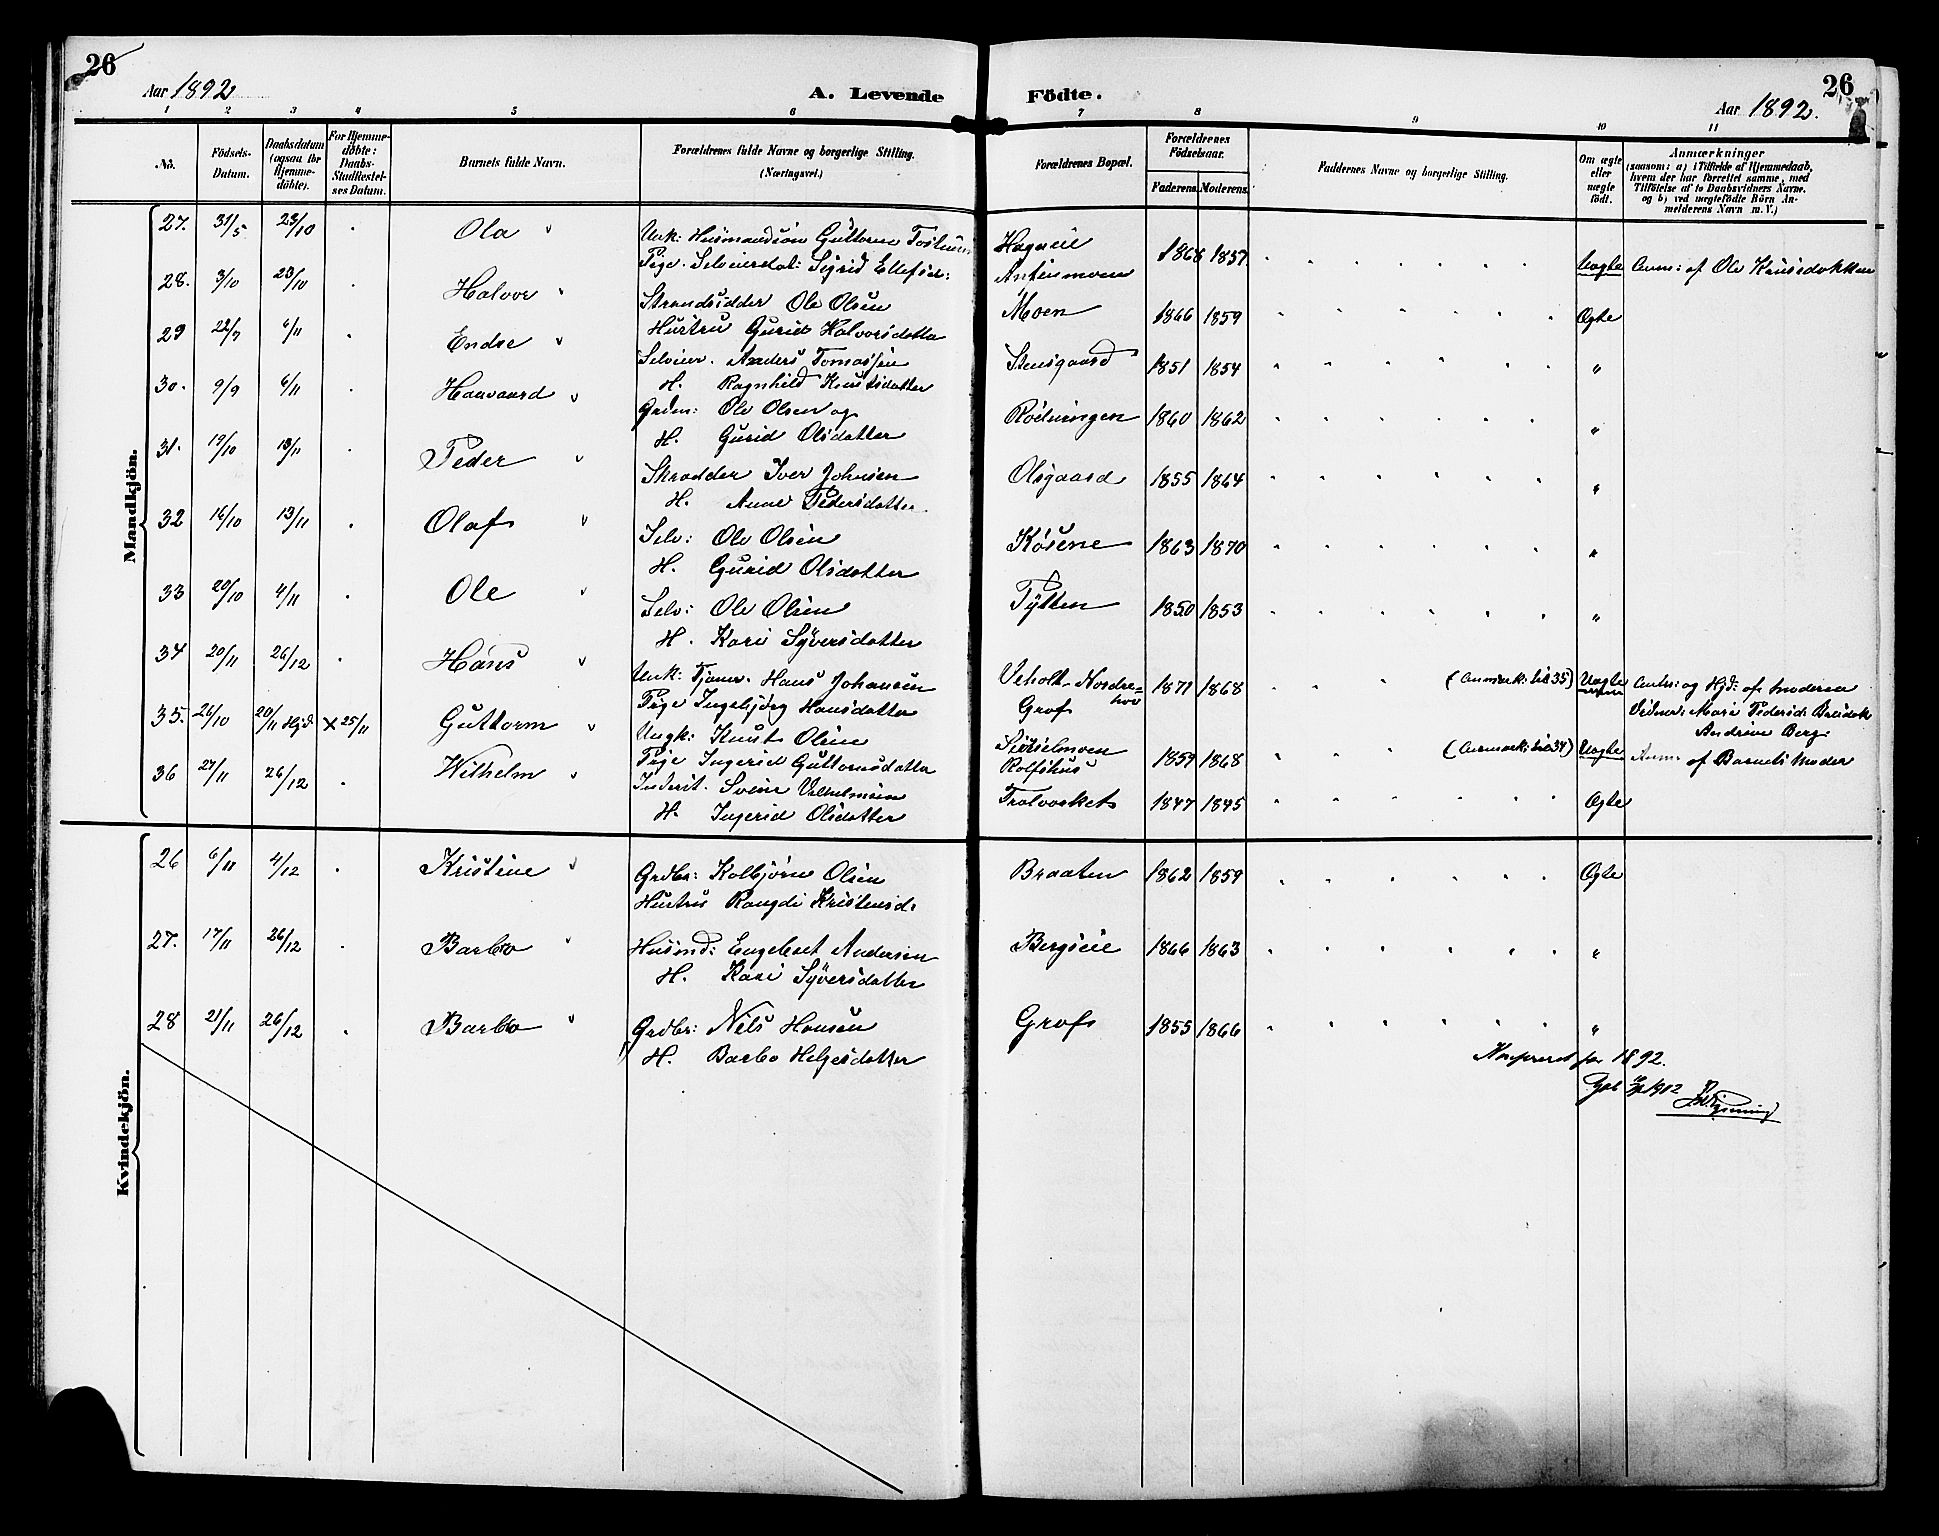 26
Aar 1892
A. Levende
1 2 3 4 5 6
No.
Födsels-Datum.
Daabsdatum (ogsaa for Hjemme-döbte).
For Hjemme-döbte: Daabs-Stadfæstel-ses Datum.
Barnets fulde Navn.
Forældrenes fulde Navne og borgerlige Stilling. (Næringsvei.)
Mandkjön.
27. 31/5 23/10 Ola
Unk: Husmandsön Guttorm
Pige. Selveierdat: Sigrid Ellefsd:
28. 3/10 23/10 Halvor
Strandsidder Ole Olsen
Hustru Gurid Halvorsdatter
29 22/9 6/11 Endre
Selveier. Anders Tomassen
H. Ragnhild Knutsdatter
30. 9/9 6/11 Haavaard
Grdm: Ole Olsen og
H. Gurid Olsdatter
31. 19/10 13/11 Peder
Skrædder Iver Johnsen
H. Anne Pedersdatter.
32 16/10 13/11 Olaf
Selv: Ole Olsen
H. Gurid Olsdatter
33 20/10 4/11 Ole
Selv: Ole Olsen
H. Kari Syversdatter
34 20/11 26/12 Hans
Unk: Tjener. Hans Johansen
Pige Ingebjörg Hansdatter
35. 26/10 20/11 Hjd. × 25/11 Guttorm
Ungk: Knut Olsen
Pige Ingerid Guttormsdatter
36 27/11 26/12 Wilhelm
Inderst. Svein Vilhelmsen
H. Ingerid Olsdatter
Kvindekjön.
26 6/11 4/12 Kristine
Grdbr: Kolbjörn Olsen
Hustru Rangdi Kristensd:
27. 17/11 26/12 Barbo
Husmd: Engebret Andersen
H. Kari Syversdatter
28 21/11 26/12 Barbo
Grdbr: Nils Hansen
H. Barbo Helgesdatter
26
Födte.
Aar 1892.
7 8 9 10 11
Forældrenes Bopæl.
Forældrenes Födselsaar.
Faderens. Moderens.
Faddernes Navne og borgerlige Stilling.
Om ægte eller uægte födt.
Anmærkninger
(saasom: a) i Tilfælde af Hjemmedaab, hvem der har forrettet samme, med Tilföielse af to Daabsvidners Navne. og b) ved uægtefödte Börn An-melderens Navn m. V.)
Hagaeie
Antinmoen 1868 1857. Uægte Anm: af Ole
Moen 1866 1859 Ægte
Stensgaard 1851 1854 "
Rödningen 1860 1862 "
Olsgaard 1855 1864 "
Kösene 1863 1870 "
Tytten 1850 1853 "
Veholt Nordre-hov
Grof 1871 1868 (Anmærk: til 35) Uægte Anm: og Hjd: af Moderen
Vidner: Mari Pedersd:
Andrine Berg.
Rolfshus 1859 1868 (Anmærk: til 34) Uægte Anm: af Barnets Moder
1847 1845 Ægte
Braaten 1862 1859 Ægte
Bergseie 1866 1863 "
Grof 1855 1866 "
for 1892.
1902